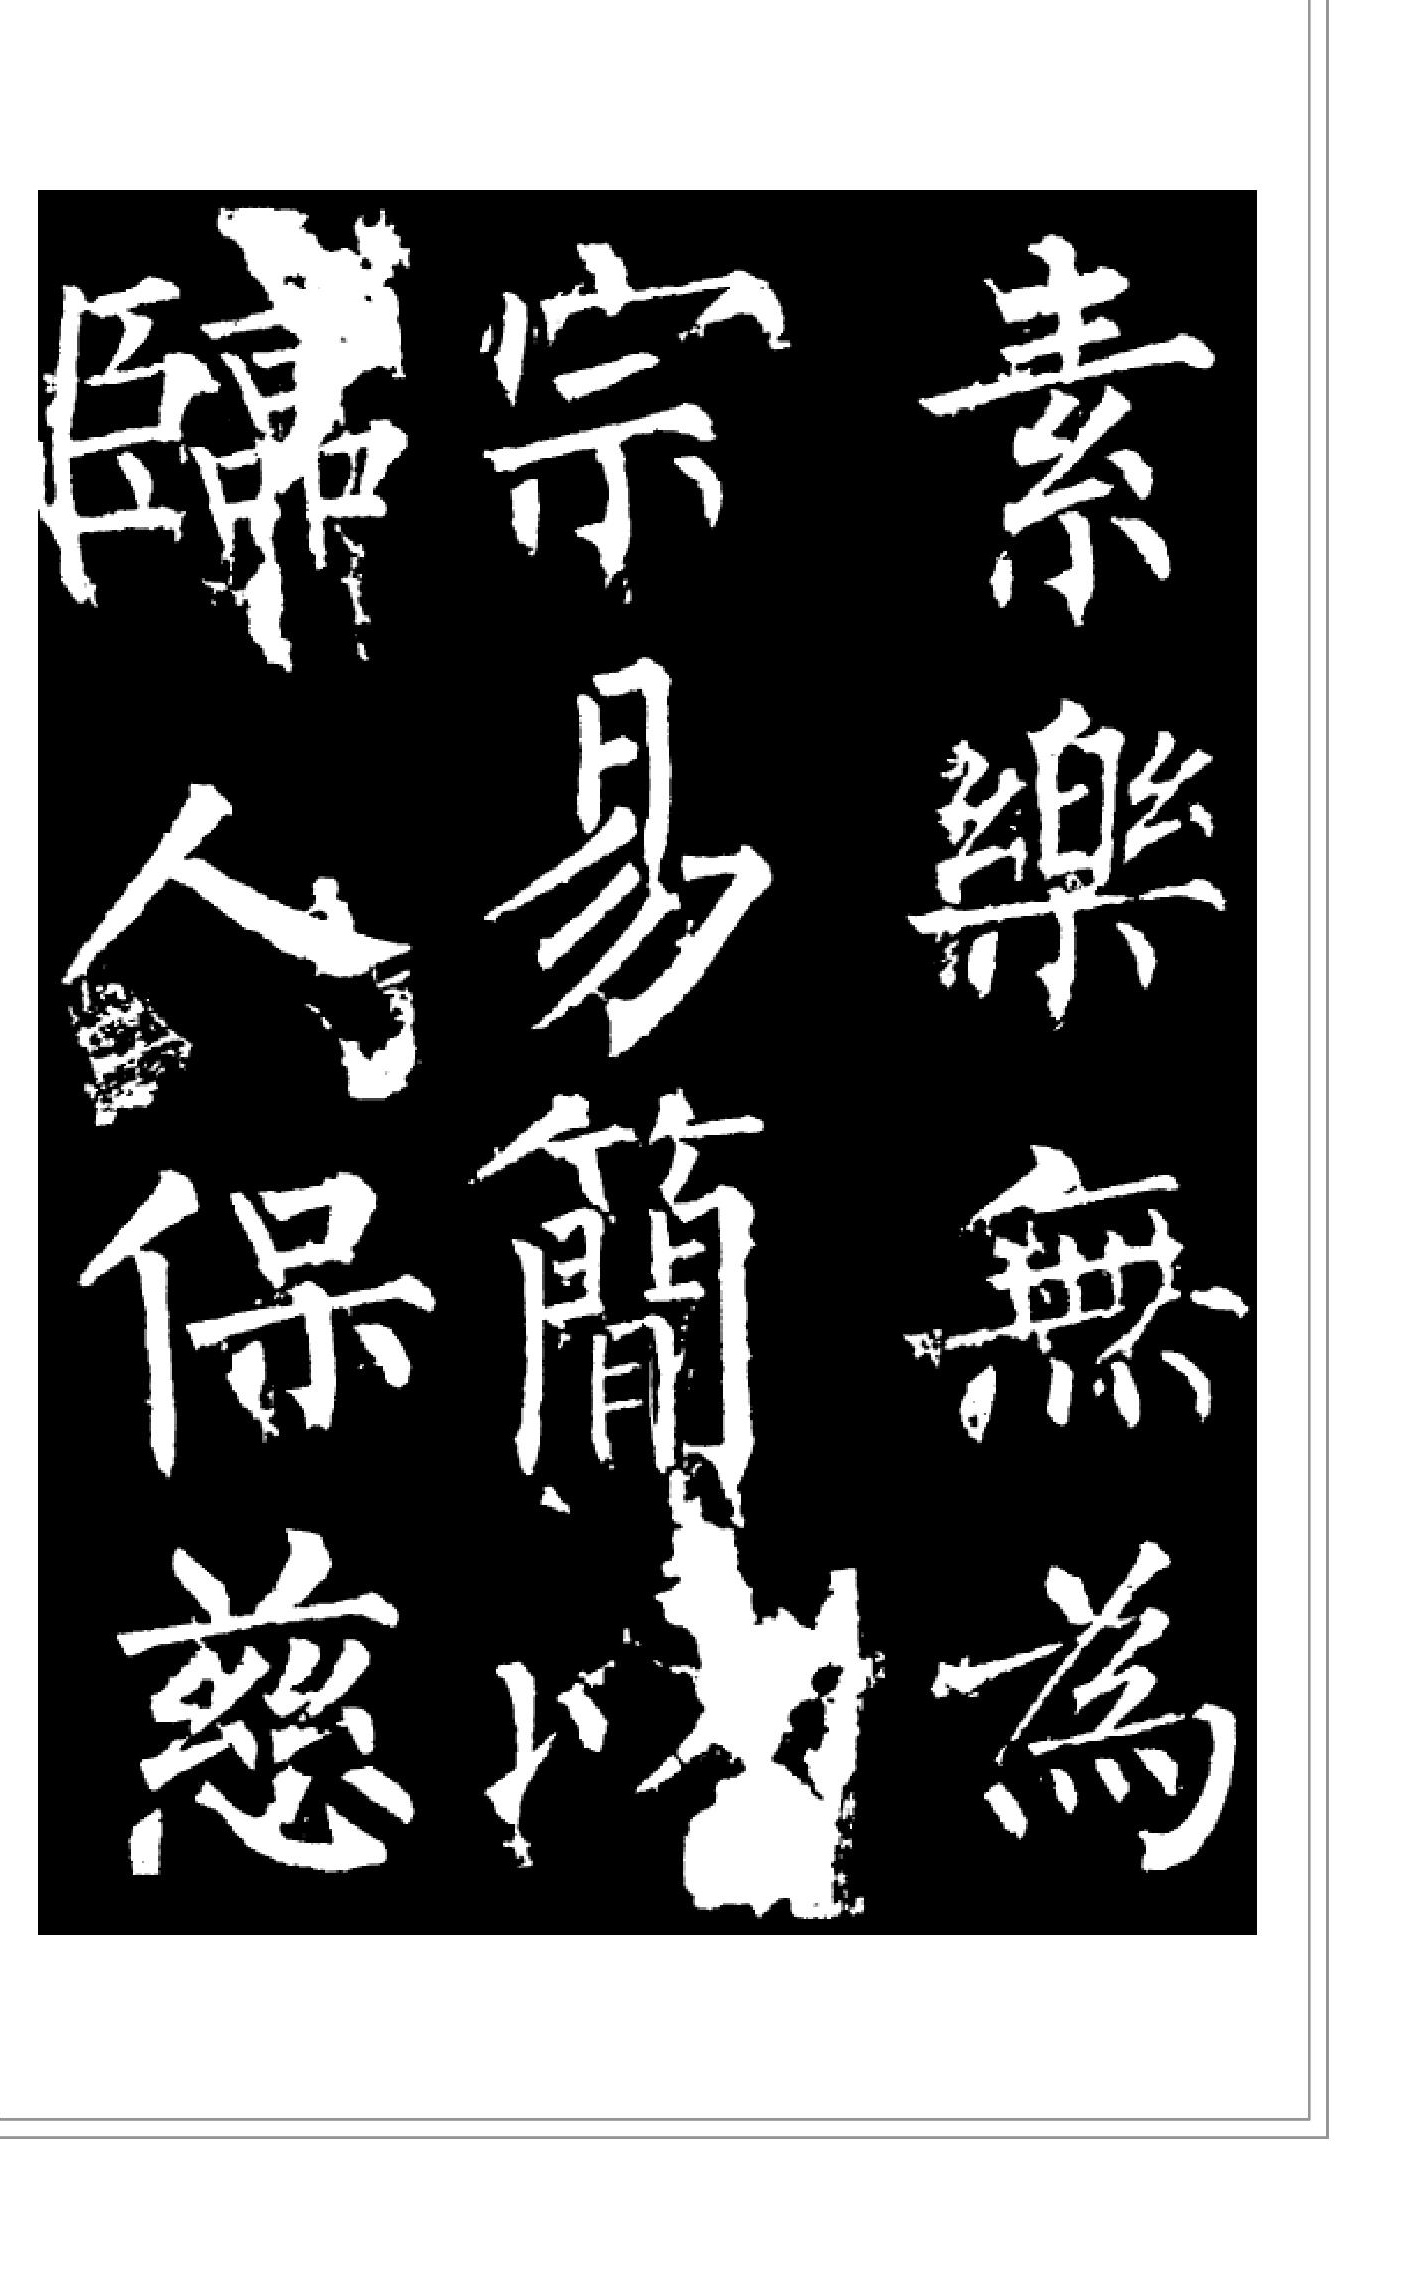 素樂無為
宗易簡以
臨人保慈